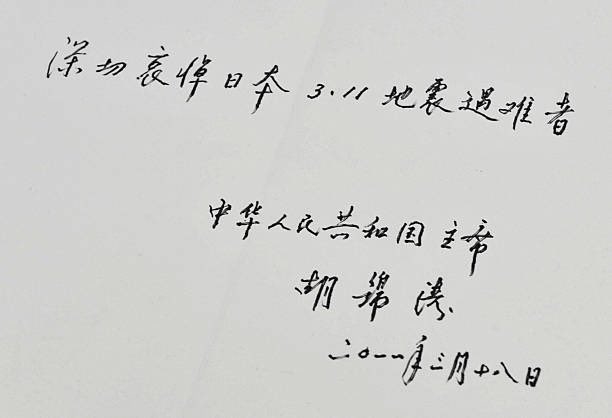 深切哀悼日本3.11地震遇难者
中华人民共和国主席
胡锦涛
二〇一一年三月十八日